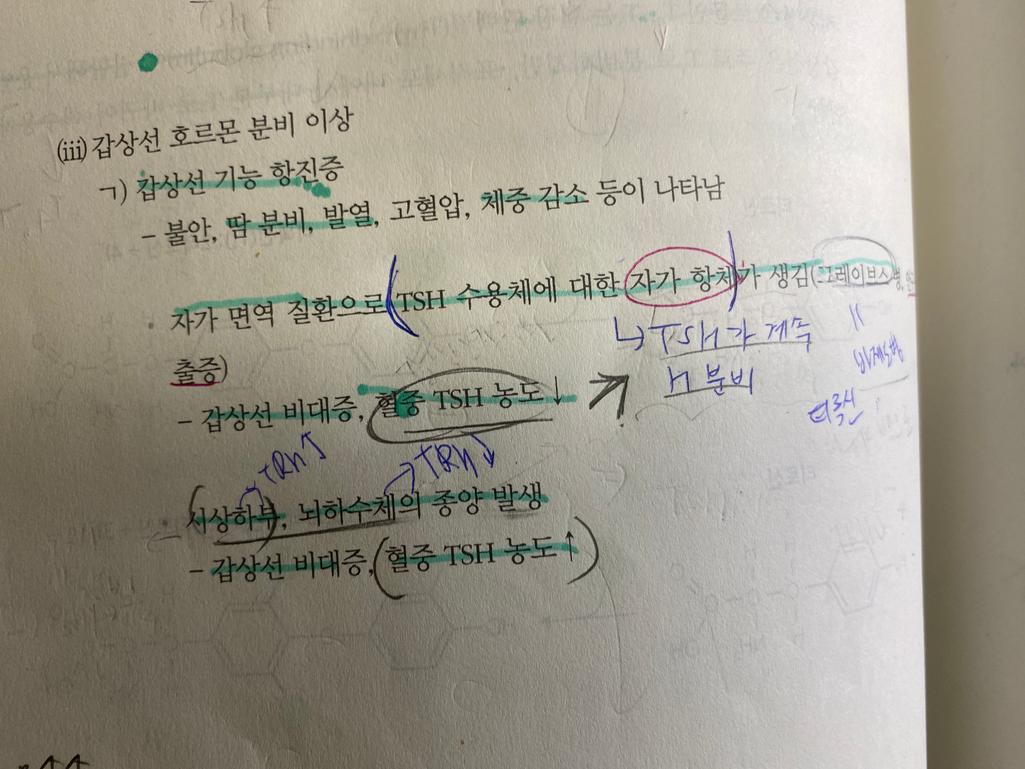 (iii) 갑상선 호르몬 분비 이상
ㄱ) 갑상선 기능 항진증
- 불안, 땀 분비, 발열, 고혈압, 체중 감소 등이 나타남
자가 면역 질환으로 TSH 수용체에 대한 자가 항체가 생김(그레이브스병, 안
출증)
↳ TSH가 계속
분비
티록신
- 갑상선 비대증, 혈중 TSH 농도↓
TRH↑
TRH↓
- 시상하부, 뇌하수체의 종양 발생
- 갑상선 비대증, 혈중 TSH 농도↑